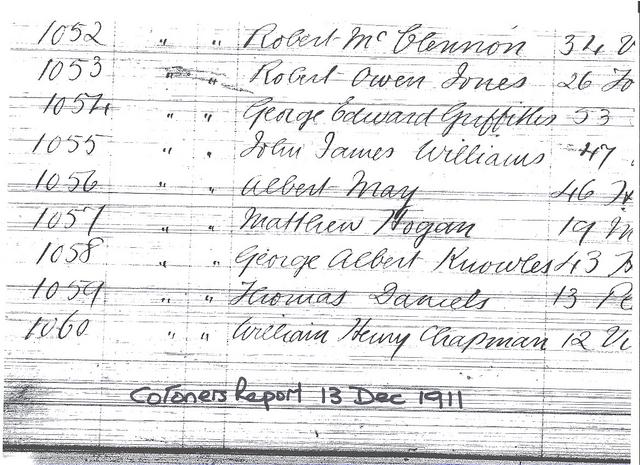 1052 " " Robert Mc Clennon 34 V
1053 " " Robert Owen Jones 26 Jo
1054 " " George Edward Griffiths 53
1055 " " John James Williams 47
1056 " " Albert May 46
1057 " " Matthew Hogan 19 M
1058 " " George Albert Knowles 43
1059 " " Thomas Daniels 13 Pe
1060 " " William Henry Chapman 12 Vi
Coroners Report 13 Dec 1911